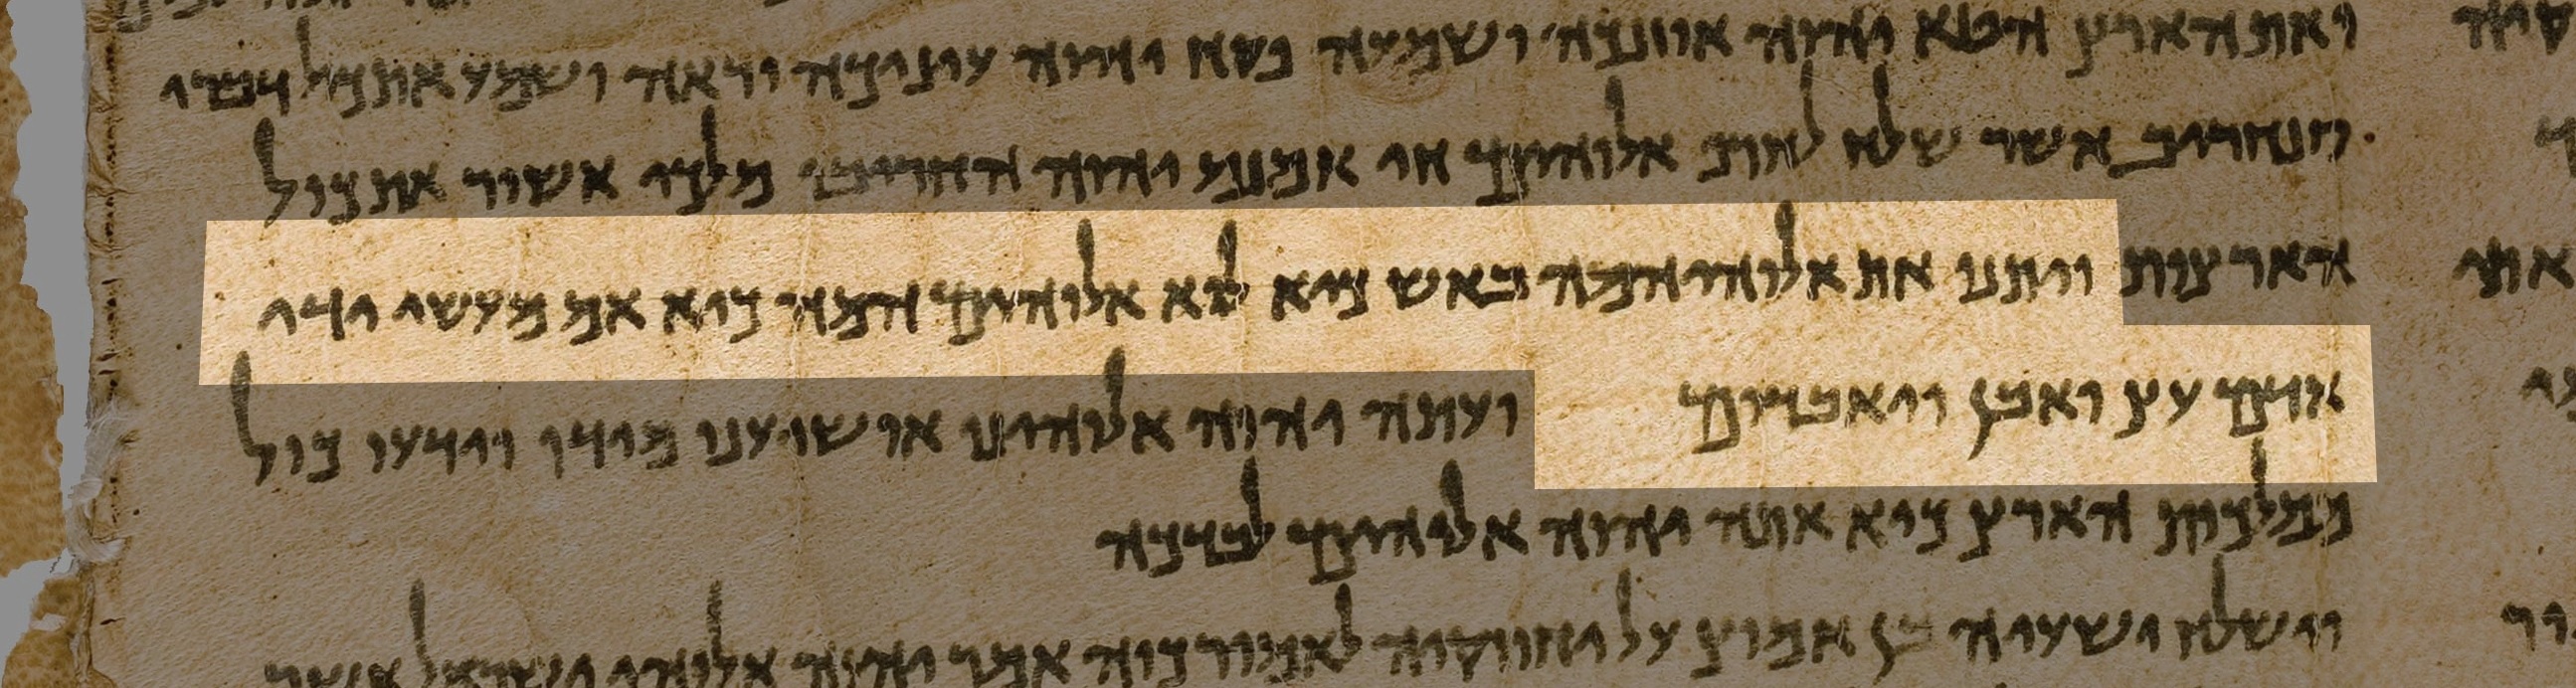 ואת הארץ הטא יהוה אוזנכה ושמעה פקח יהוה עיניכה וראה ושמע את כול דברי
סנחריב אשר שלח לחרף אלוהים חי אמנם יהוה החריבו מלכי אשור את כול
הארצות ויתנו את אלוהיהמה באש כיא לוא אלוהים המה כיא אם מעשי ידי
אדם עץ ואבן ויאבדום ועתה יהוה אלוהינו הושיענו מידו וידעו כול
ממלכות הארץ כיא אתה יהוה אלוהים לבדכה
וישלח ישעיה בן אמוץ על יחוזקיה לאמור כוה אמר יהוה אלוהי ישראל אשר